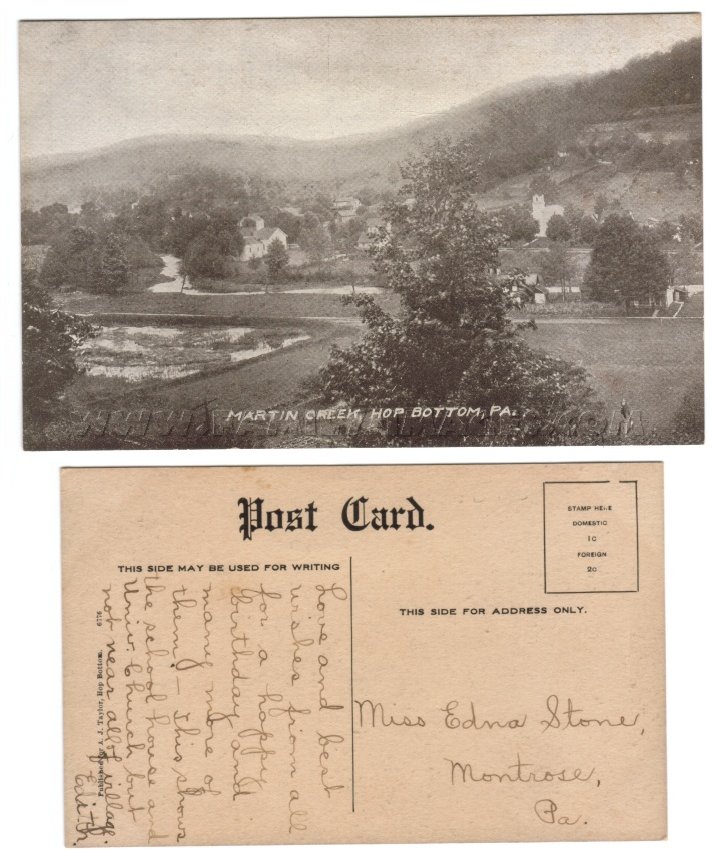 MARTIN CREEK, HOP BOTTOM, PA.
Post Card.
STAMP HERE
DOMESTIC
1C
FOREIGN
2C
THIS SIDE MAY BE USED FOR WRITING
THIS SIDE FOR ADDRESS ONLY.
Love and best
wishes from all
for a happy
birthday and
many more of
them! — This shows
the school house and
Univ. Church but
not near all of village.
Edith.
Published by A. J. Taylor, Hop Bottom. 6776
Miss Edna Stone,
Montrose,
Pa.